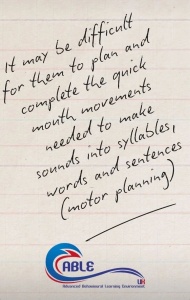 It may be difficult
for them to plan and
complete the quick
mouth movements
needed to make
sounds into syllables,
words and sentences
(motor planning)
ABLE
UK
Advanced Behavioural Learning Environment